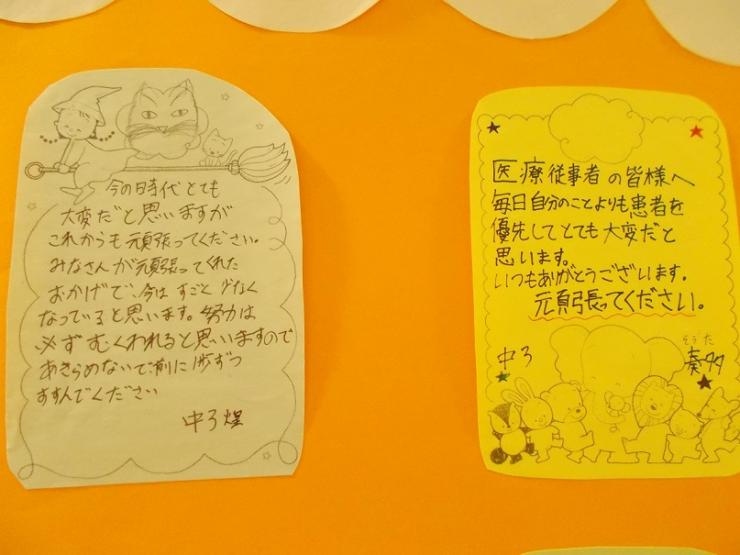 今の時代とても
大変だと思いますが
これからも頑張ってください。
みなさんが頑張ってくれた
おかげで、今はすごく少なく
なっていると思います。努力は
必ずむくわれると思いますので
あきらめないで前に1歩ずつ
すすんでください
中3 煌
医療従事者の皆様へ
毎日自分のことよりも患者を
優先してとても大変だと
思います。
いつもありがとうございます。
頑張ってください。
中3
そうた
奏多